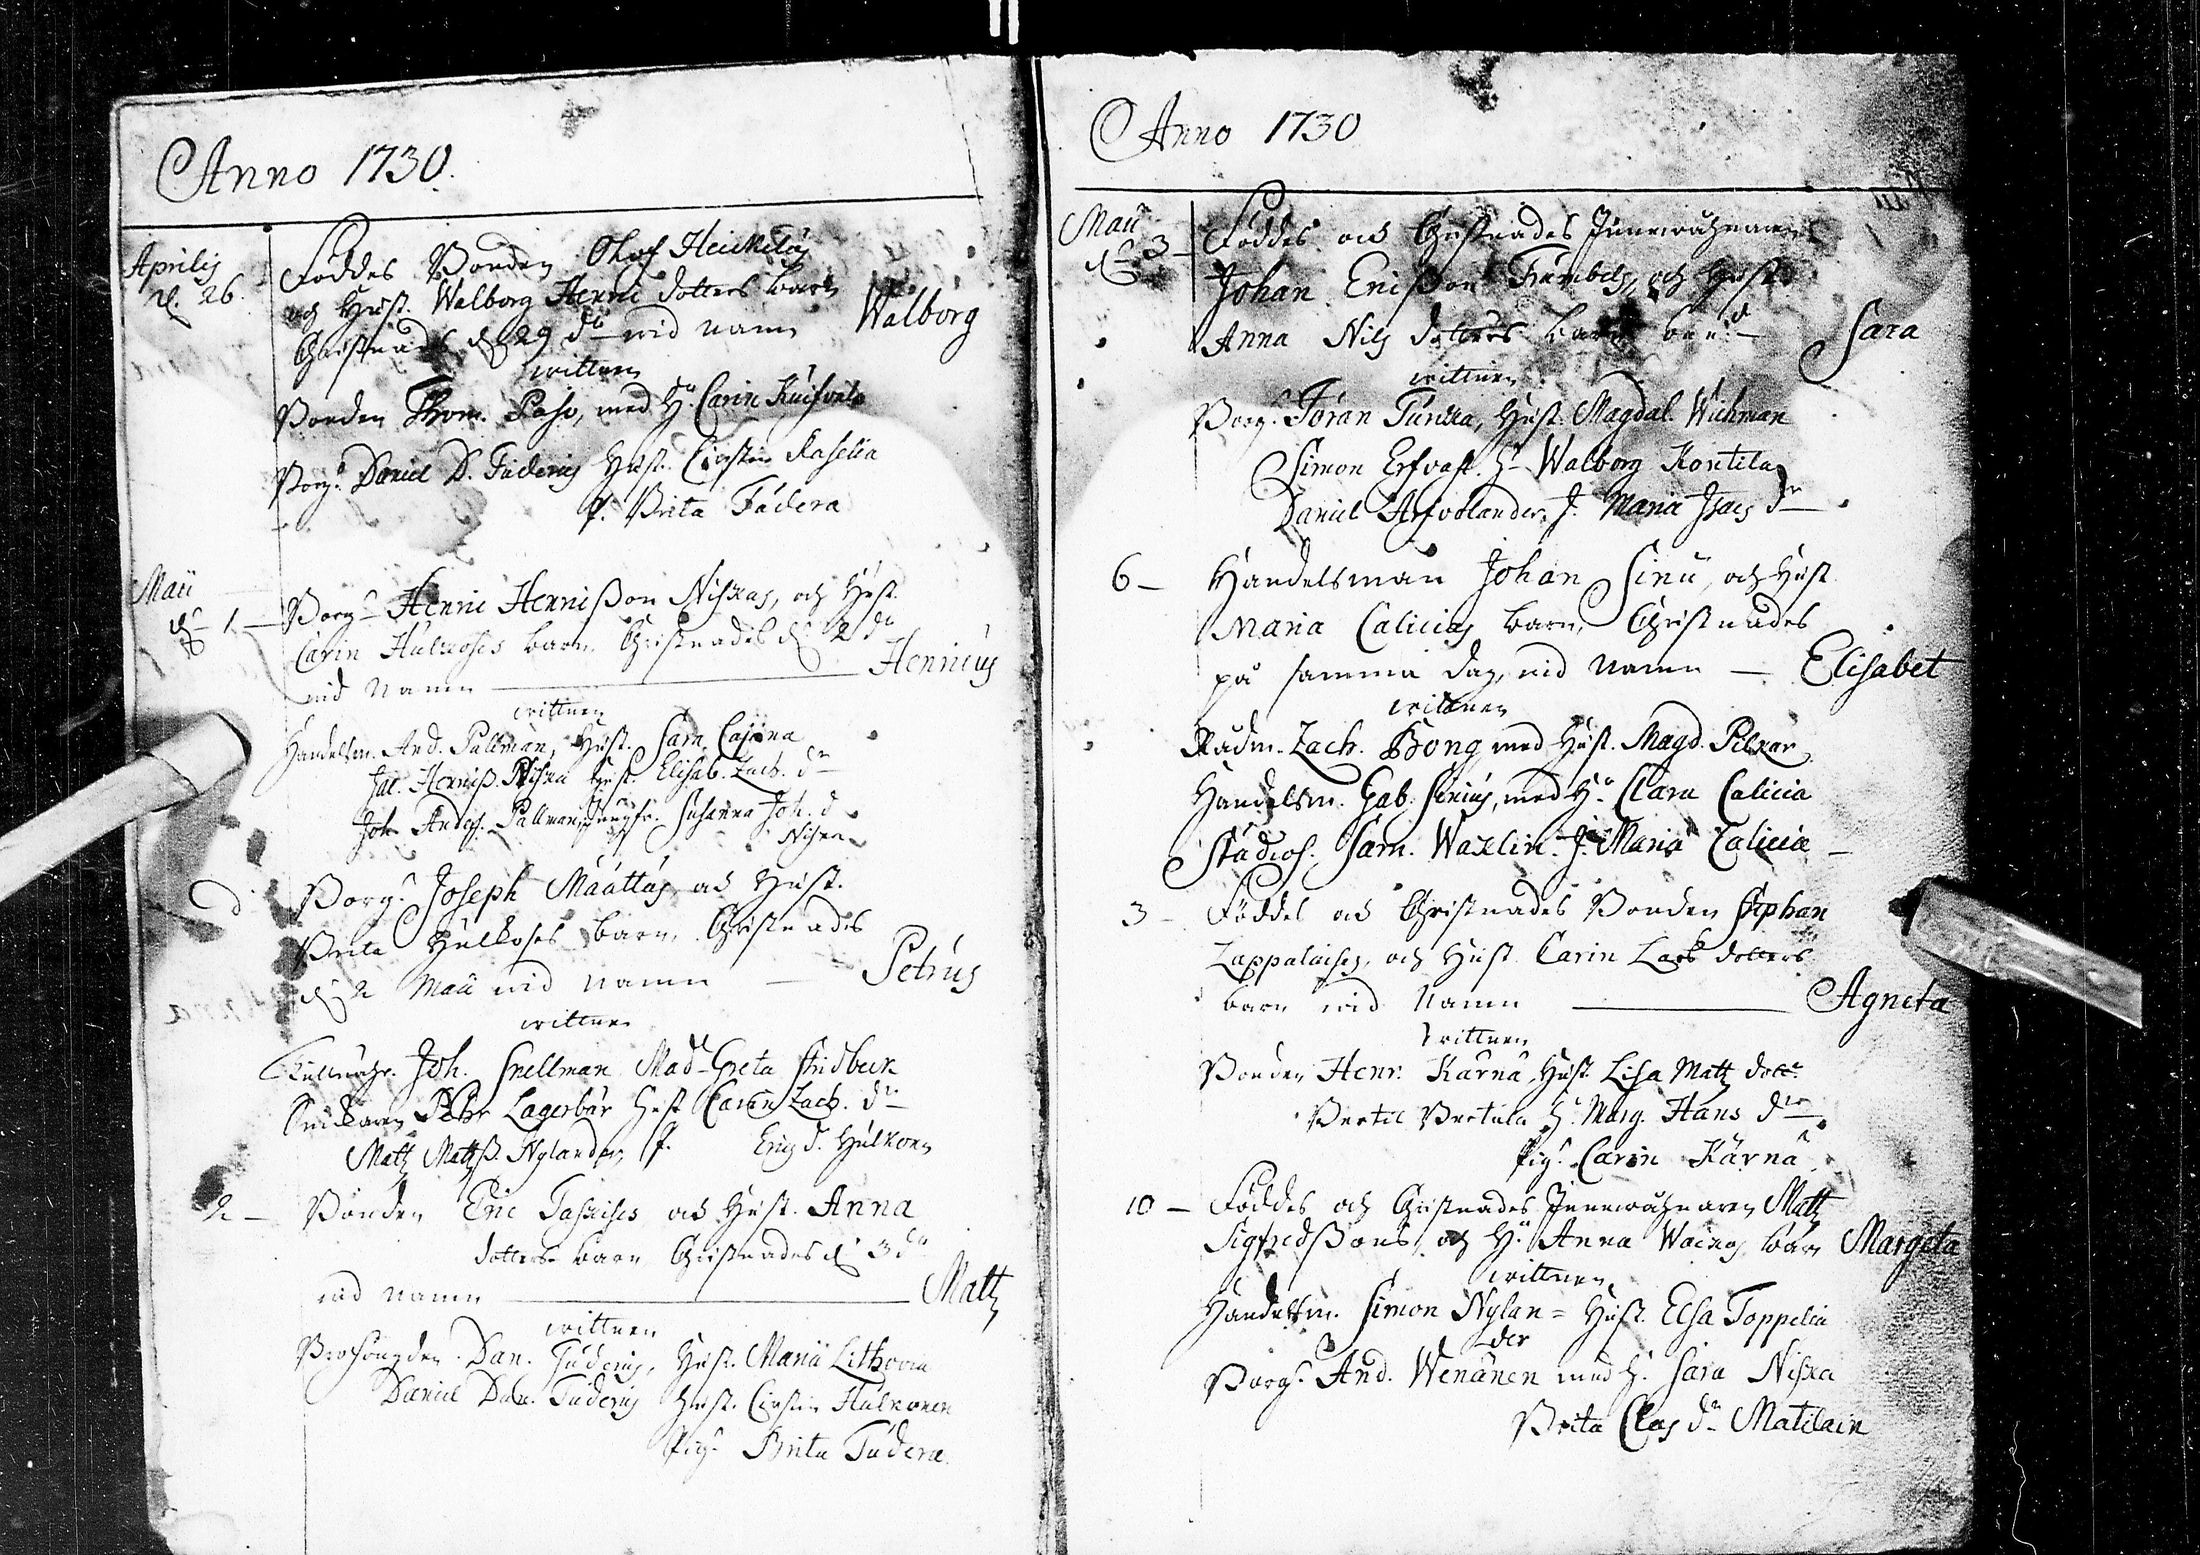 Anno 1730.
Aprilis
d. 26.
Föddes Bonden Olof Heickiläs
och Hust. Walborg Henric dotters barn
Christnades d. 29 do wid namn Walborg
wittnen
Bonden Thom. Paso, med Hu. Carin
Borg. Daniel D. Tuderus Hust. Cirstin Raselia
P. Brita Tudera
Maii
d. 1.
Borg. Henric Henrißon Niskas, och Hust.
Carin Hulkoses barn, Christnades d. 2 do
wid namn Henricus
wittnen
Handelsm. And. Pallman, Hust. Sara Cajana
Jac. Henriß. Niska Hust. Elisab. Zach. dr
Joh. Anders. Pallman, Jungfr. Susanna Joh. d.
Niska
d. Borg. Joseph Määttäs och Hust.
Brita Hulkoses barn, Christnades
d. 2 Maii wid namn Petrus
wittnen
Joh. Snellman Mad. Greta Stridbeck
Pehr Lagerbär Hust. Carin Zach. dr
Matz Matzß. Nylander, P. Hulkonen
2 Bonden Eric Taskises och Hust. Anna
dotters barn Christnades d. 3 do
wid namn Matz
wittnen
Dan. Tuderus, Hust. Maria Lithovia
Daniel Dan. Tuderus Hust. Cirstin Hulkonen
Pig. Brita Tudera
Anno 1730
Maii
d. 3
Föddes och Christnades Innewåhnarens
Johan Erißon och Hust.
Anna Nils dotters barn Sara
wittnen
Borg. Jöran Turcka, Hust. Magdal. Wichman
Simon Erfvast. H. Walborg Kontila
Daniel Arfvolander, J. Maria Isacs dr
6 Handelsman Johan Sinii, och Hust
Maria Calicias barn, Christnades
på samma dag, wid namn Elisabet
wittnen
Rådm. Zach. Bong med Hust. Magd. Pilkar
Handelsm. Gab. Sinius, med Hu. Clara Calicia
Studios. Sam. Waxlin. J. Maria Calicia
3 Föddes och Christnades Bonden Stephan
Lappalaises, och Hust. Carin Lars dotters
barn wid namn Agneta
wittnen
Bonden Henr. Kärnä, Hust. Lisa Matz dott.
Bertil Bertula H. Marg. Hans dr
Pig. Carin Kärnä
10 Föddes och Christnades Innewåhnaren Matz
Sigfredßons, och Hu. Anna Wäinäs barn Margeta
wittnen
Handelsm. Simon Nylan= Hust. Elsa Toppelia
der
Borg. And. Wenänen med H. Sara Niska
Brita Clas dr Matilain